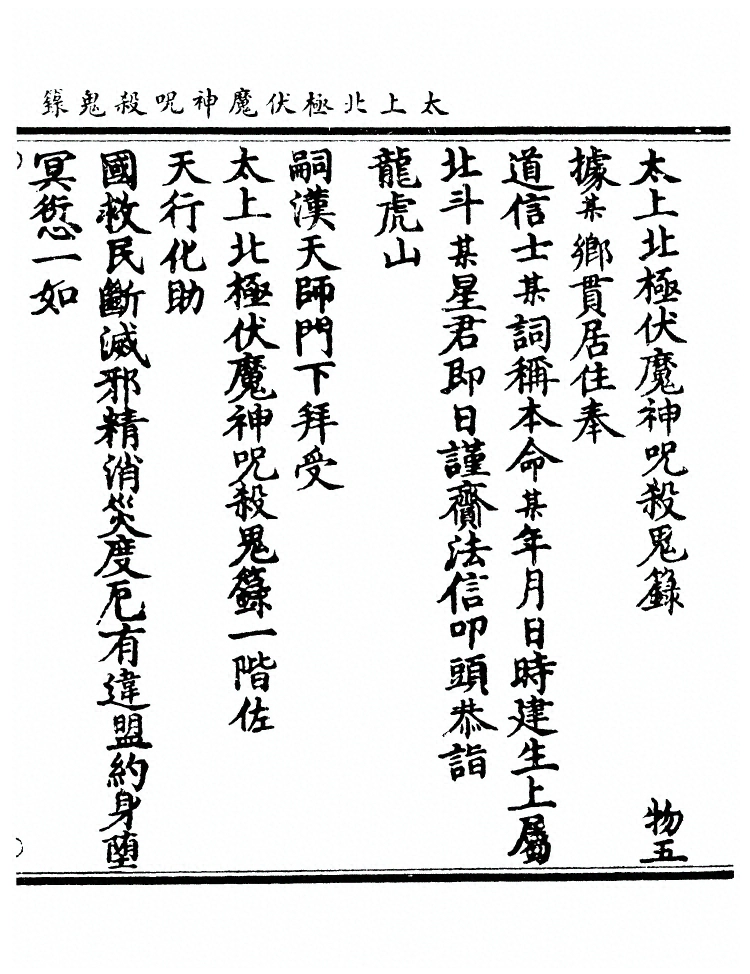 太上北極伏魔神呪殺鬼籙
太上北極伏魔神呪殺鬼籙　物五
據某鄉貫居住奉
道信士某詞稱本命某年月日時建生上屬
北斗某星君即日謹齎法信叩頭恭詣
龍虎山
嗣漢天師門下拜受
太上北極伏魔神呪殺鬼籙一階佐
天行化助
國救民斷滅邪精消災度厄有違盟約身墮
冥愆一如